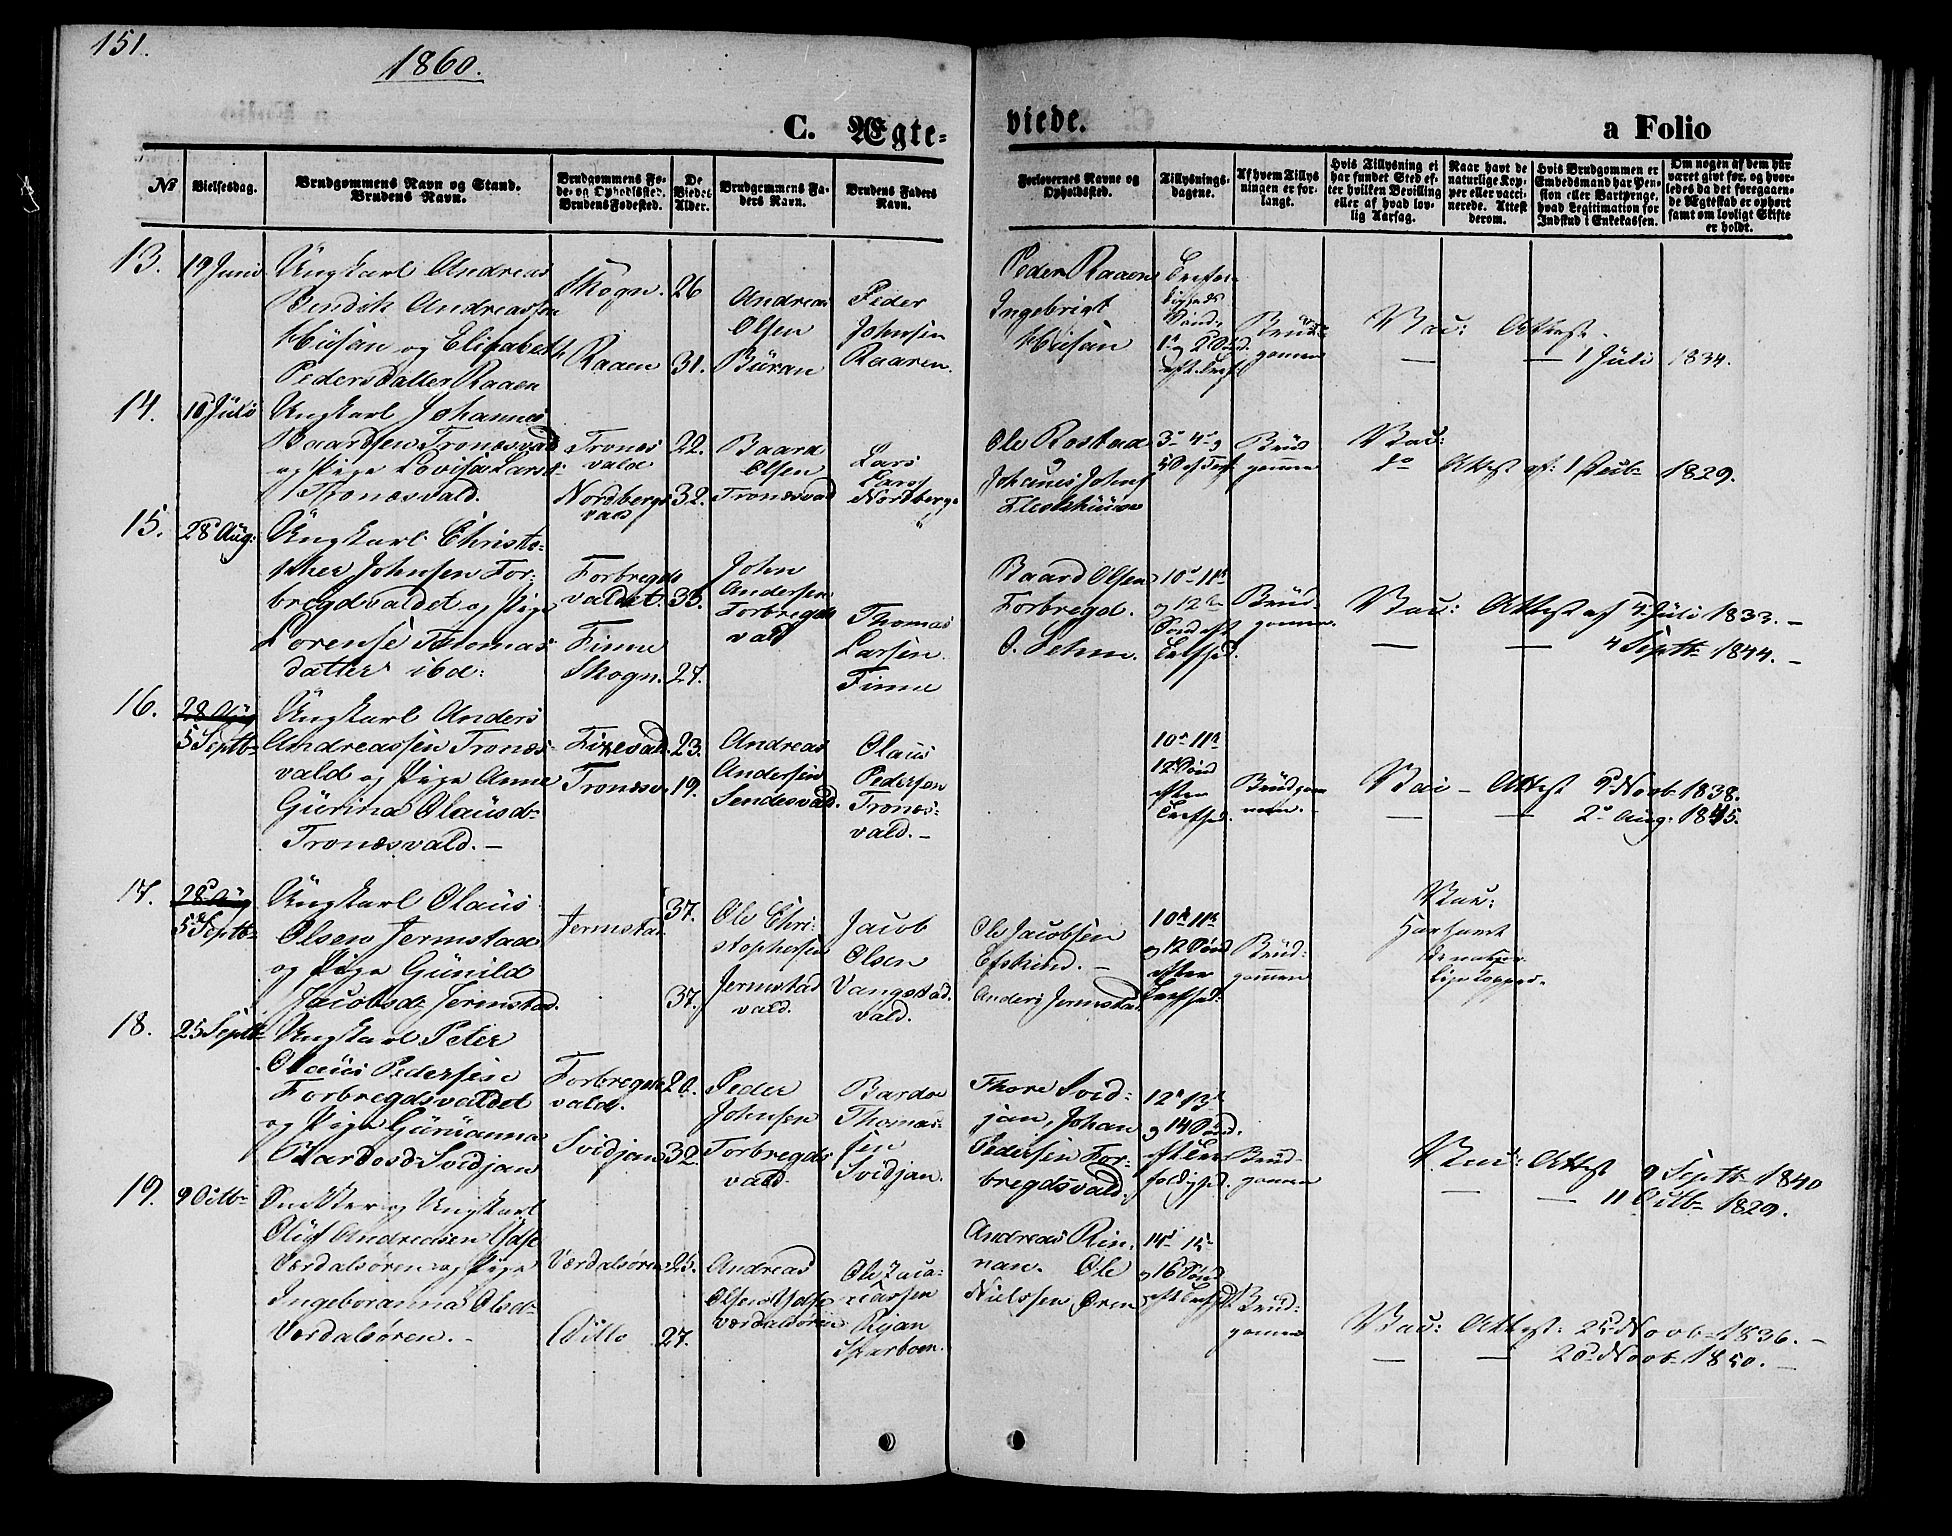 151.
1860.
C. Ægte-
viede.
a Folio
No
Vielsesdag.
Brudgommens Navn og Stand.
Brudens Navn.
Brudgommens Fø-
de- og Opholdssted.
Brudens Fødested.
De
Viedes
Alder.
Brudgommens Fa-
ders Navn.
Brudens Faders
Navn.
Forlovernes Navne og
Opholdssted.
Tillysnings-
dagene.
Af hvem Tillys
ningen er for-
langt.
Hvis Tillysning ei
har fundet Sted ef-
ter hvilken Bevilling
eller af hvad lov-
lig Aarsag.
Naar havt de
naturlige Kop-
per eller vacci-
nerede. Attest
derom.
Hvis Brudgommen er
Embedsmand har Pen-
sion eller Vartpenge,
hvad Legitimation for
Indskud i Enkekassen.
Om nogen af dem har
været givt før, og hvor-
ledes da det foregaaen-
de Ægteskab er ophørt
samt om lovligt Skifte
er holdt.
13.
19 Juni
Ungkarl Andreas
Bendik Andreassen
Husan og Elisabeth
Pedersdatter Raaen
Skogn.
Raaen
26
31.
Andreas
Olsen
Buran
Peder
Johnsen
Raaren.
Peder Raaen
Ingebrigt
Husan
Brud-
gommen
Vac: Attest
— — 1 Juli 1834.
14.
10 Juli
Ungkarl Johannes
Baardsen Tronesvald
og Pige Lovisa Larsd:
Tronesvald.
Trones
vald
Nordbergs
vald
22.
32.
Baard
Olsen
Tronesvald
Lars
Lars
Nordbergs
Ole Rostad
Johanes Johns
3die 4de og
Brud
gommen
Vac:
do Attest af: 1 1829.
15.
28 Aug:
Ungkarl Christo-
pher Johnsen For-
bregdsvaldet og Pige
Lorense Thomas
datter ibd:
Forbregds
valdet.
Finne
Skogn.
33.
27.
John
Andersen
Forbregds
vald
Thomas
Larsen
Finne
Baard Olsen
Forbregd.
O. Sehm.
10de 11te
og 12te
Sønd eft
Trefhed.
Brud-
gommen.
Vac: Attest af 4 Juli 1833. —
— — 4 Septb 1844. —
16.
28 Aug
5 Septb
Ungkarl Anders
Andreassen Trones-
vald og Pige Anne
Gurina Olausd-
Tronesvald. —
Trones
23.
19.
Andreas
Andersen
Sendesvald.
Olaus
Pedersen
Trones-
vald. —
10de 11te
12te Sønd
efter
Trefhed.
Brudgom
men.
Vac — Attest 9 Novb 1838.
— — 2 Aug: 1845.
17.
28 Aug
5 Septb
Ungkarl Olaus
Olsen Jermstad
og Pige Gunild
Jacobsd: Jermstad.
Jermstad
37.
37.
Ole Chri-
stophersen
Jermstad
vald.
Jacob
Olsen
Vangstad
vald.
Ole Jacobsen
Efskind. —
Anders Jermstad.
10de 11te
og 12 Sønd
efter
Trefhed.
Brud-
gommen
Vac:
Har havt
de natur-
lige kopper.
18.
25 Septb
Ungkarl Peter
Olaus Pedersen
Forbregdsvaldet
og Pige Gurianna
Bardosd: Svidjan
Forbregds
vald.
Svidjan
20.
32.
Peder
Johnsen
Forbregds
vald.
Bardo
Thomas-
sen
Svidjan.
Thore Svid-
jan, Johan
Pedersen For-
bregdsvald.
12te 13de
og 14 Sønd.
Brud-
gommen
Vac: Attest 9 Septb 1840
— — 11 Octb 1829.
19.
9 Octb
Snedker og Ungkarl
Oluf Andreasen Ydse
Værdalsøren og Pige
Ingeboranna Olsd-
Værdalsøren. —
Værdalsøren
Ditto
25.
27.
Andreas
Olsen Ydse
Værdalsøren
Ole Zaca-
riassen
Rejan
Sparboen.
Andreas Rin-
nan. Ole
Nielssen Øren
14de 15de
og 16 Sønd
Brud-
gommen
Vac: Attest: 25 Novb 1836. —
— — 20 Novb 1850. —